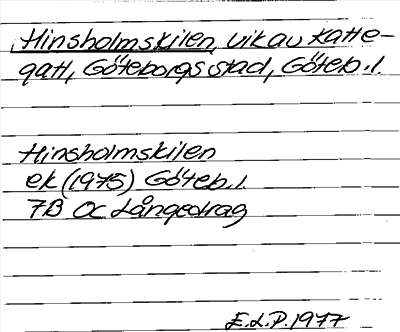 Hinsholmskilen, vik av Katte-
gatt, Göteborgs stad, Göteb. l.
Hinsholmskilen
ek (1975) Göteb. l.
7B 0c Långedrag
E.L.P. 1977